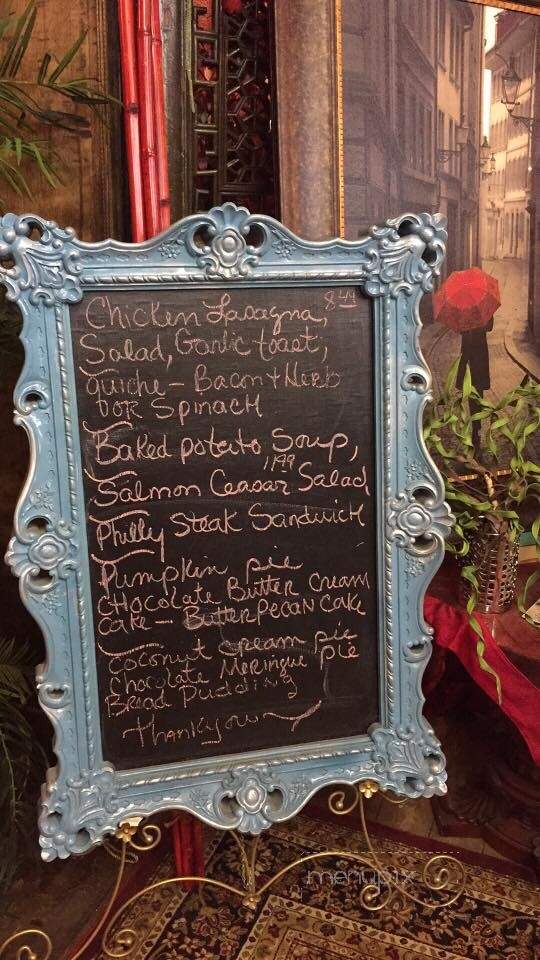 Chicken Lasagna, 8.49
Salad, Garlic toast,
Quiche - Bacon + Herb
or Spinach
Baked potato Soup,
11.99
Salmon Ceasar Salad,
Philly Steak Sandwich
Pumpkin pie
Chocolate Butter Cream
Cake - Butter Pecan Cake
Coconut cream pie
Chocolate Meringue pie
Bread Pudding
Thank you
menupix